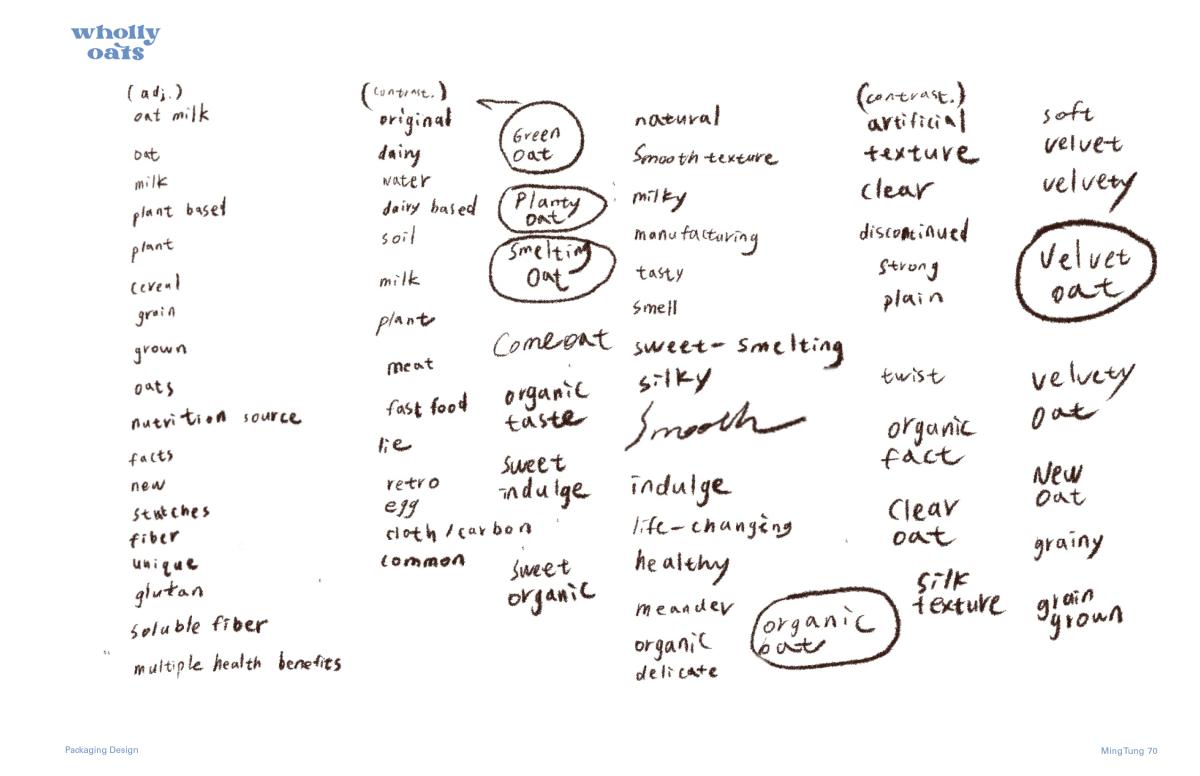 wholly
oats
(adj.)
oat milk
oat
milk
plant based
plant
cereal
grain
grown
oats
nutrition source
facts
new
statches
fiber
unique
glutan
soluble fiber
multiple health benefits
(contrast.)
original
dairy
water
dairy based
soil
milk
plant
meat
fast food
lie
retro
egg
cloth / carbon
common
Green
oat
Planty
oat
Smelting
Oat
Comeoat
organic
taste
sweet
indulge
sweet
organic
natural
Smooth texture
milky
manufacturing
tasty
smell
sweet- smelting
silky
Smooth
indulge
life-changing
healthy
meander
organic
delicate
organic
oat
(contrast.)
artificial
texture
clear
discontinued
strong
plain
twist
organic
fact
Clear
oat
silk
texture
soft
velvet
velvety
Velvet
oat
velvety
oat
New
oat
grainy
grain
grown
Packaging Design
MingTung 70